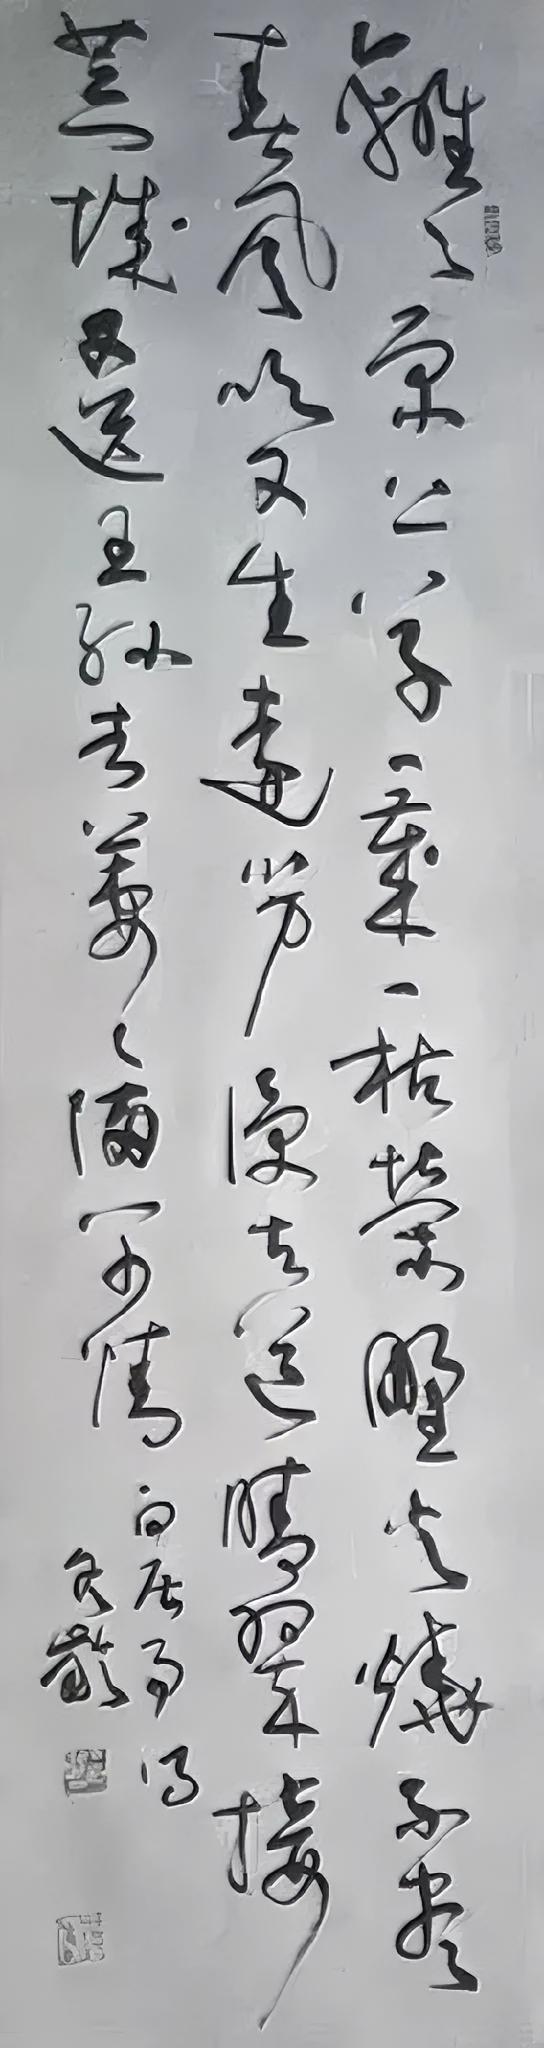 離々原上草一歲一枯榮野火燒不盡
春風吹又生遠芳侵古道晴翠接
荒城又送王孫去萋々滿別情
白居易